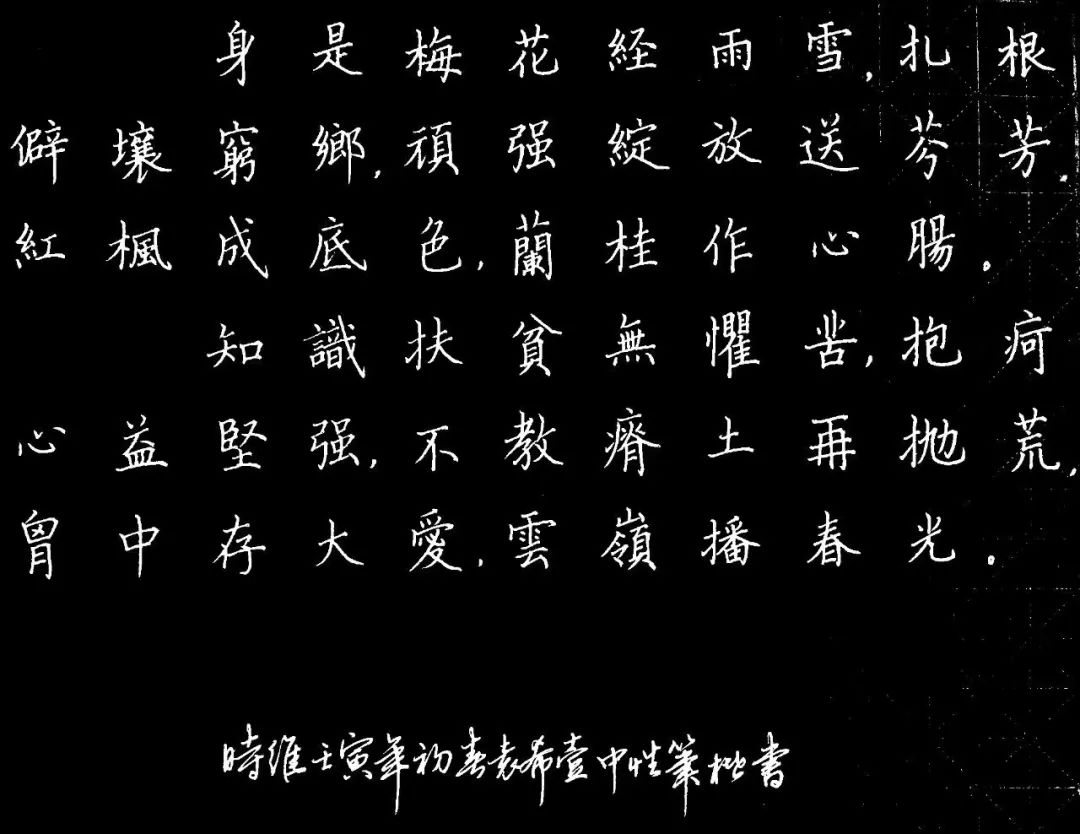 身是梅花経雨雪,扎根
僻壤窮鄉,頑强綻放送芬芳.
紅楓成底色,蘭桂作心腸.
知識扶貧無懼苦,抱疴
心益堅强,不教瘠土再抛荒,
胷中存大愛,雲嶺播春光.
時維壬寅年初春袁希壹中性筆楷書